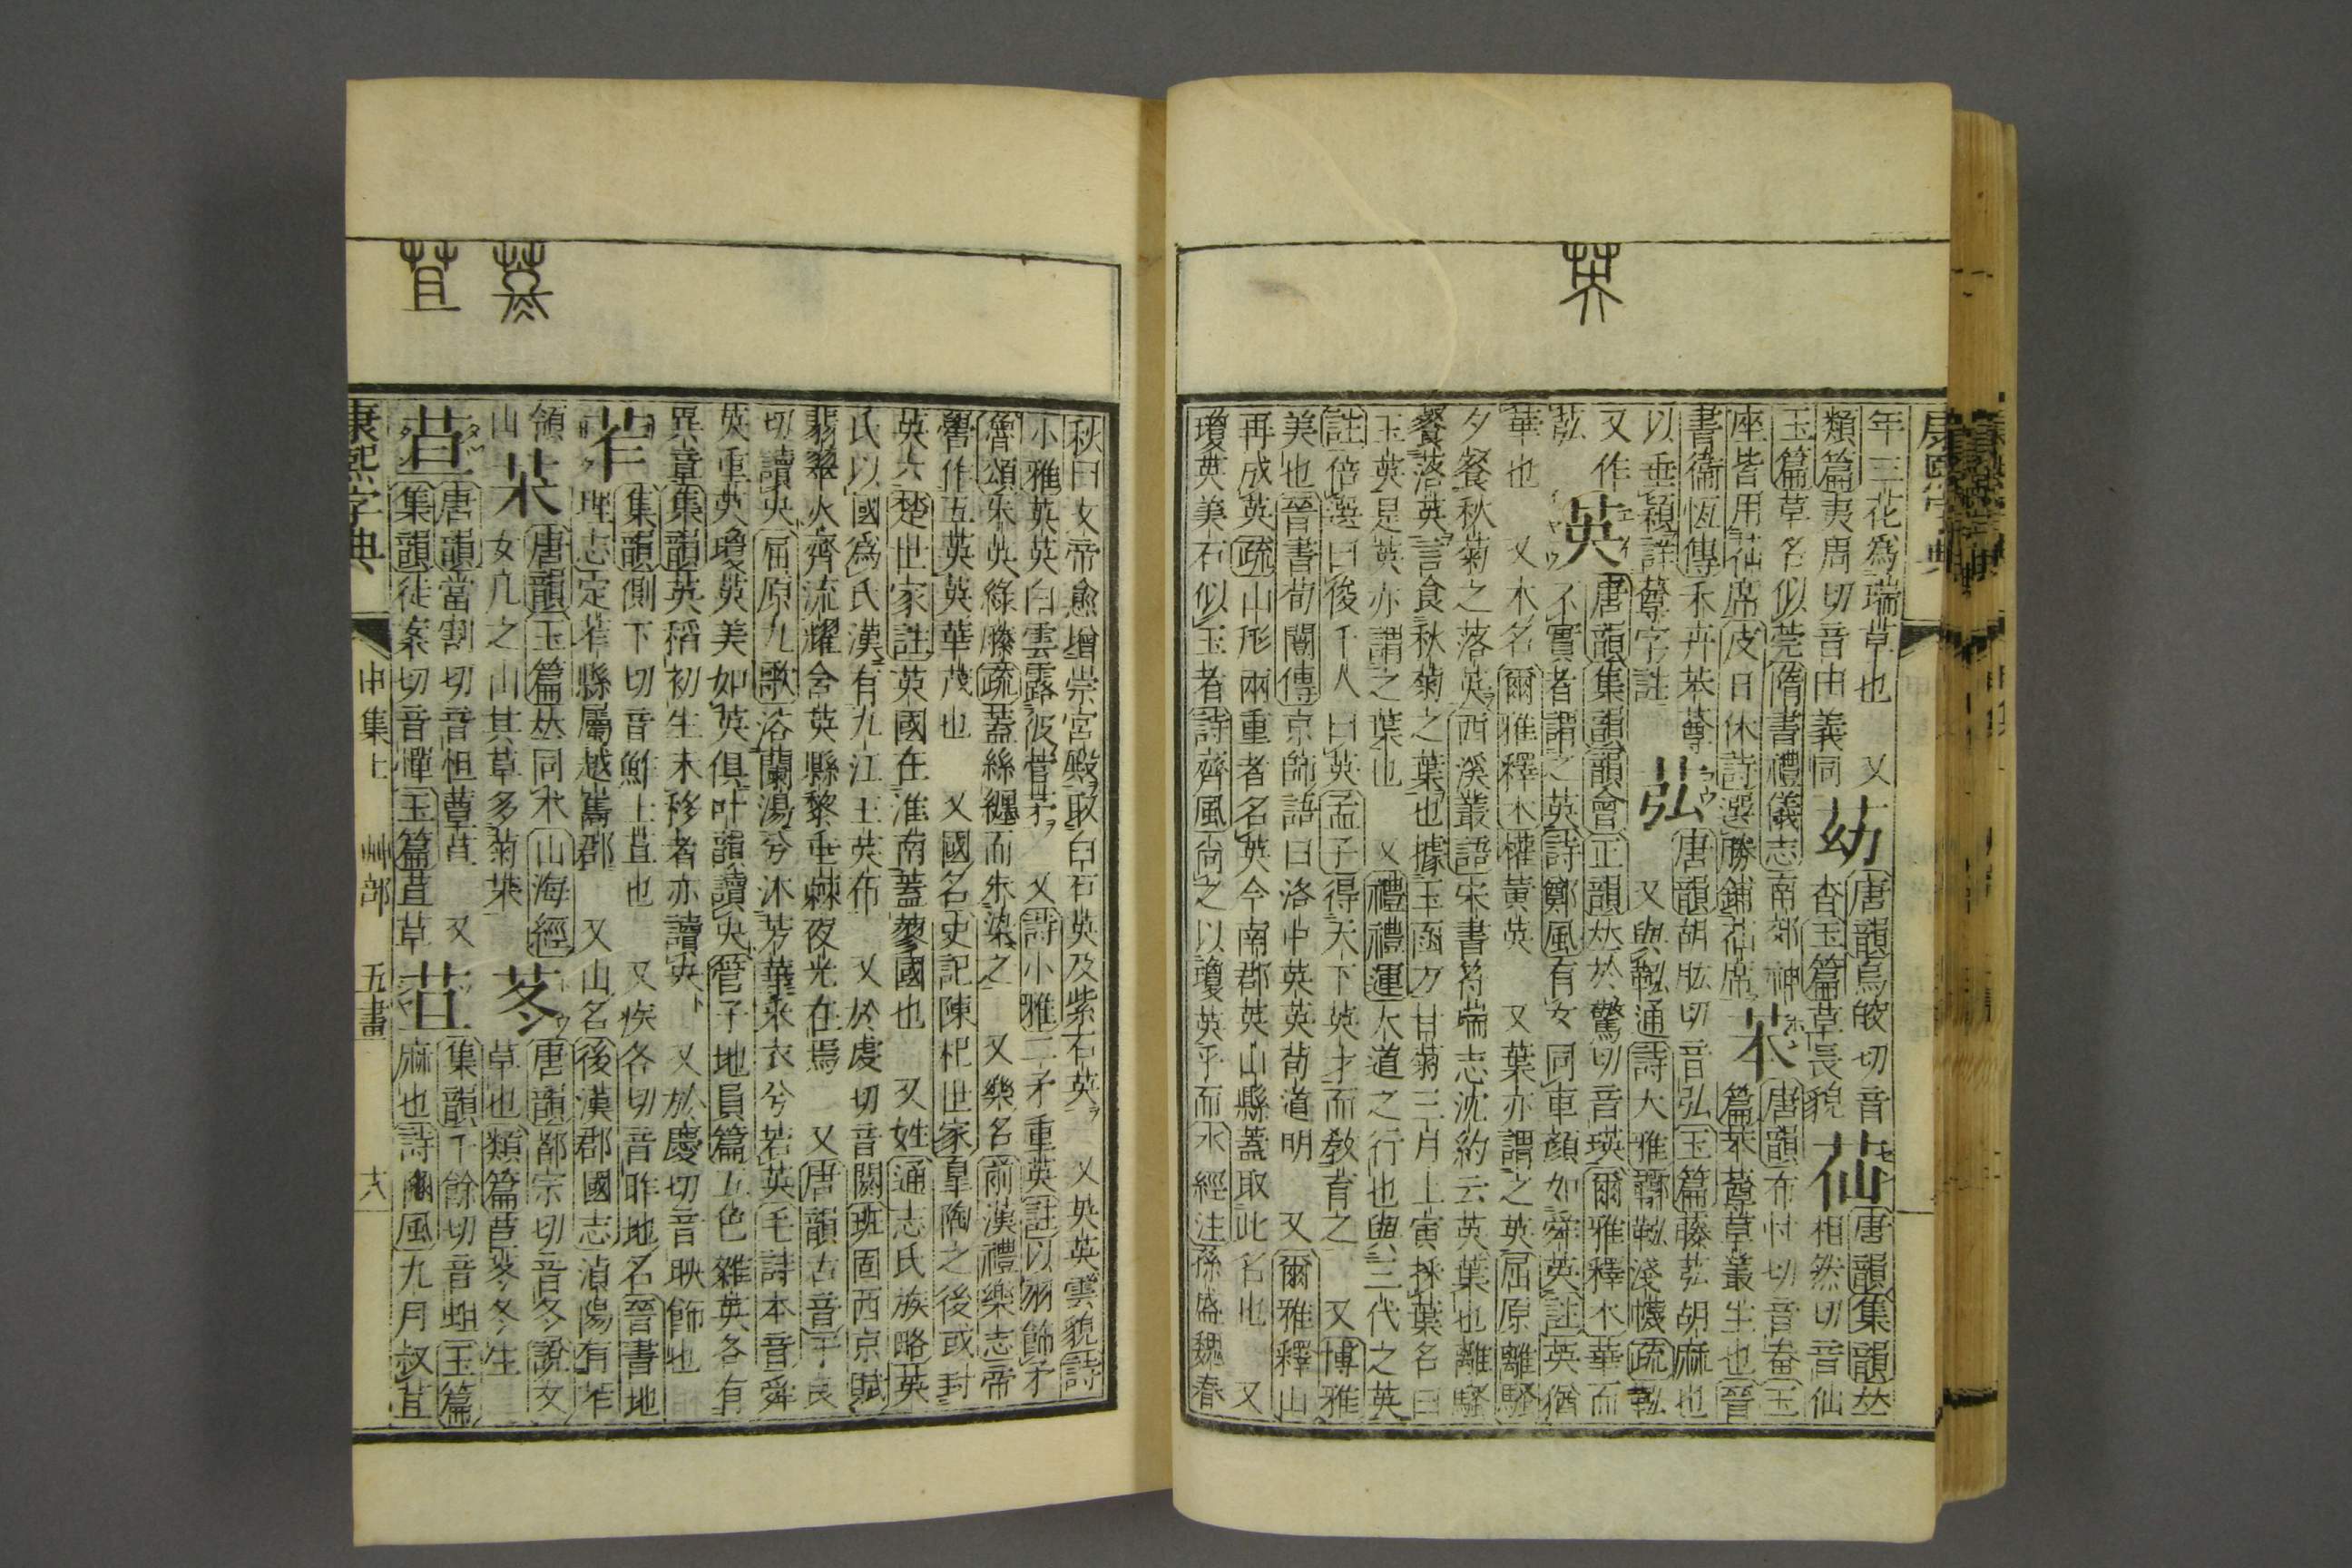 英
年三花爲瑞草也 又 䒴 唐韻烏皎切音
類篇夷周切音由義同 杳玉篇草長貌 苮 唐韻集韻𠀤
相然切音仙
玉篇草名似莞隋書禮儀志南郊神
座皆用苮席皮日休詩選勝鋪苮席 苯 唐韻布忖切音畚玉
篇苯䔿草叢生也晉
書衞恆傳禾卉苯䔿
以垂穎詳䔿字註 苰 唐韻胡肱切音弘玉篇藤苰胡麻也
又與鞃通詩大雅鞹鞃淺幭疏鞃
又作
苰 英 唐韻集韻韻會正韻𠀤於驚切音瑛爾雅釋木華而
不實者謂之英詩鄭風有女同車顏如舜英註英猶
華也 又木名爾雅釋木權黃英 又葉亦謂之英屈原離騷
夕餐秋菊之落英西溪叢語宋書符瑞志沈約云英葉也離騷
餐落英言食秋菊之葉也據玉函方甘菊三月上寅採葉名曰
玉英是英亦謂之葉也 又禮禮運大道之行也與三代之英
註倍選曰俊千人曰英孟子得天下英才而敎育之 又博雅
美也晉書荀闓傳京師語曰洛中英英荀道明 又爾雅釋山
再成英疏山形兩重者名英今南郡英山縣蓋取此名也 又
瓊英美石似玉者詩齊風尚之以瓊英乎而水經注孫盛魏春
𦮙 苴
秋曰文帝愈增崇宮殿取白石英及紫石英 又英英雲貌詩
小雅英英白雲露彼菅茅 又詩小雅二矛重英註以朱飾矛
魯頌朱英綠縢疏蓋絲纏而朱染之 又樂名前漢禮樂志帝
嚳作五英英華茂也 又國名史記陳杞世家臯陶之後或封
英六楚世家註英國在淮南蓋蓼國也 又姓通志氏族略英
氏以國爲氏漢有九江王英布 又於虔切音闕班固西京賦
翡翠火齊流耀含英縣黎垂棘夜光在焉 又唐韻古音于良
切讀央屈原九歌浴蘭湯兮沐芳華采衣兮若英毛詩本音舜
英重英瓊英美如英俱叶韻讀央管子地員篇五色雜英各有
異章集韻英稻初生未移者亦讀央 又於慶切音映飾也
苲 集韻側下切音鮓土苴也 又疾各切音昨地名晉書地
理志定苲縣屬越嶲郡 又山名後漢郡國志湞陽有苲
領
山 苿 唐韻玉篇𠀤同朩山海經
女几之山其草多菊苿 苳 唐韻都宗切音冬說文
草也類篇苣苳冬生
䒟 唐韻當割切音怛蕇草 又
集韻徒案切音憚玉篇苴草 苴 集韻千餘切音蛆玉篇
麻也詩豳風九月叔苴
康熙字典 申集上 艸部 五畫 十八